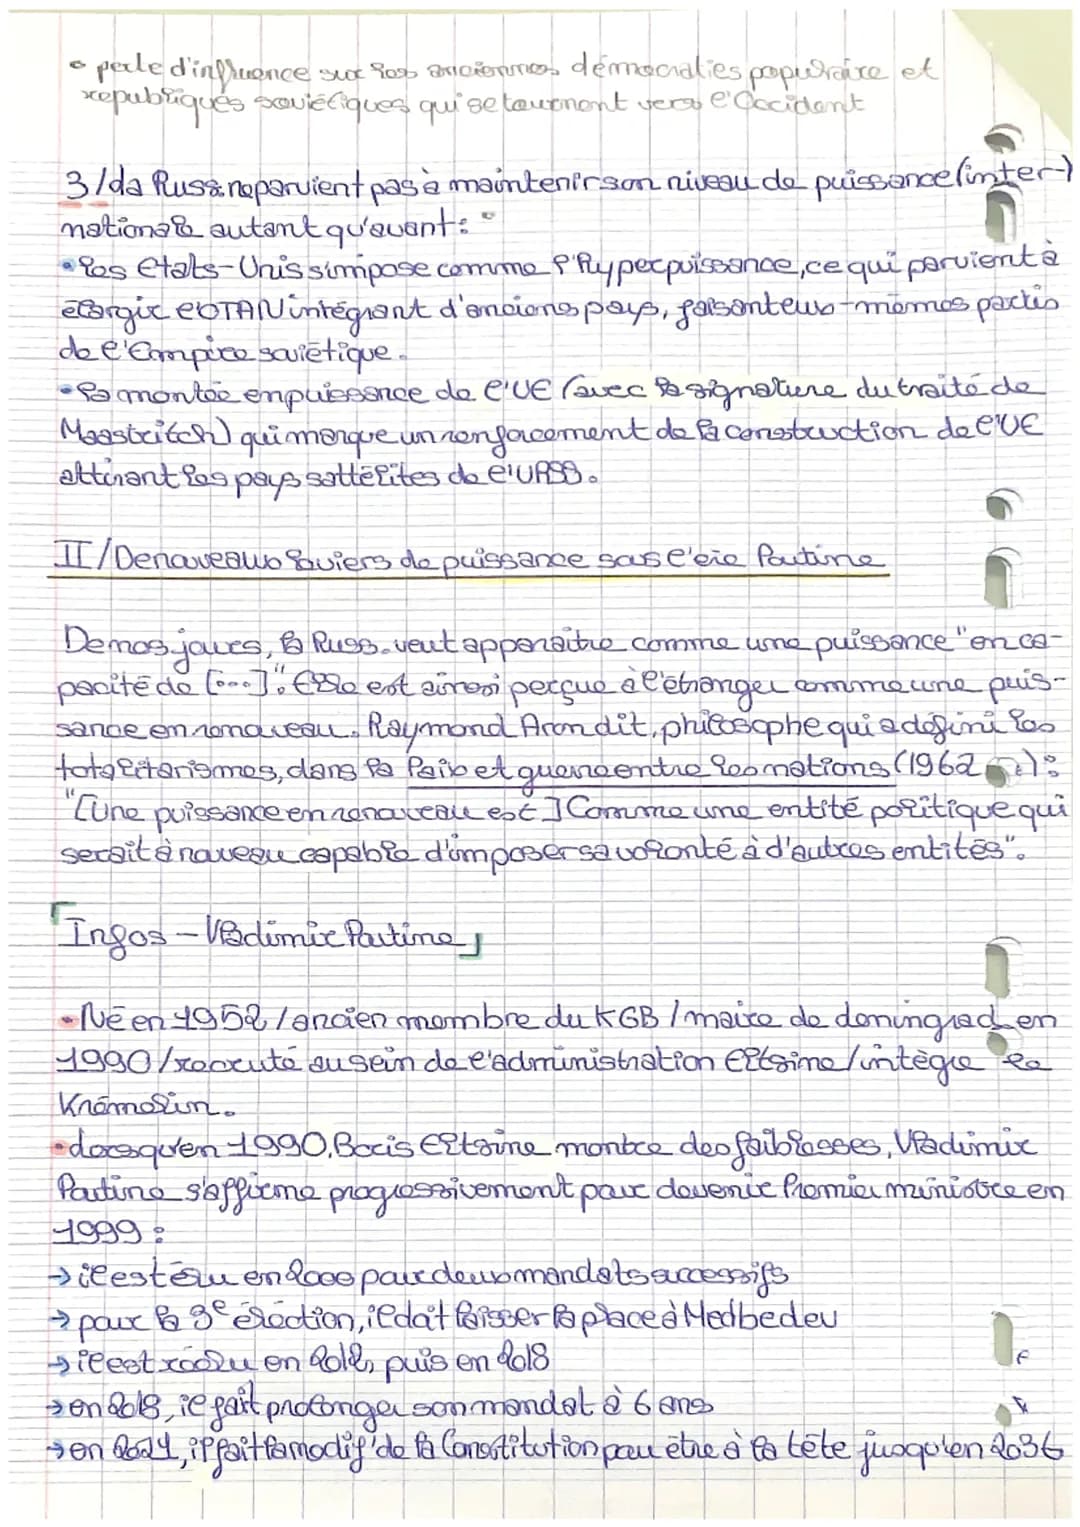 • perte d'influence sur les anciennes démocraties populaire et
républiques soviétiques qui se tournent vers l'Occident
3/La Russie ne parvient pas à maintenir son niveau de puissance (inter-)
nationale autant qu'avant :
• les Etats-Unis s'impose comme l'Hyperpuissance, ce qui parvient à
élargir l'OTAN intégrant d'anciens pays, faisant eux-mêmes partis
de l'Empire soviétique.
• la montée en puissance de l'UE (avec la signature du traité de
Maastritch) qui marque un renforcement de la construction de l'UE
attirant les pays sattélites de l'URSS.
II/De nouveaux leviers de puissance sous l'ère Poutine
De nos jours, la Russ. veut apparaître comme une puissance "en ca-
pacité de [...]". Elle est ainsi perçue à l'étranger comme une puis-
sance en renouveau. Raymond Aron dit, philosophe qui a défini les
totalitarismes, dans la Paix et guerre entre les nations (1962) :
"[Une puissance en renouveau est] Comme une entité politique qui
serait à nouveau capable d'imposer sa volonté à d'autres entités".
Infos - Vladimir Poutine
• Né en 1952 / ancien membre du KGB / maire de Leningrad en
1990 / recruté au sein de l'administration Eltsine / intègre le
Kremelin.
• Lorsqu'en 1990, Boris Eltsine montre des faiblesses, Vladimir
Poutine s'affirme progressivement pour devenir Premier ministre en
1999 :
→ il est élu en 2000 pour deux mandats successifs
→ pour la 3e éléction, il doit laisser la place à Medbedev
→ il est réélu en 2012, puis en 2018
→ en 2018, il fait prolonger son mandat à 6 ans
→ en 2021, il fait la modif' de la Constitution pour être à la tête jusqu'en 2036